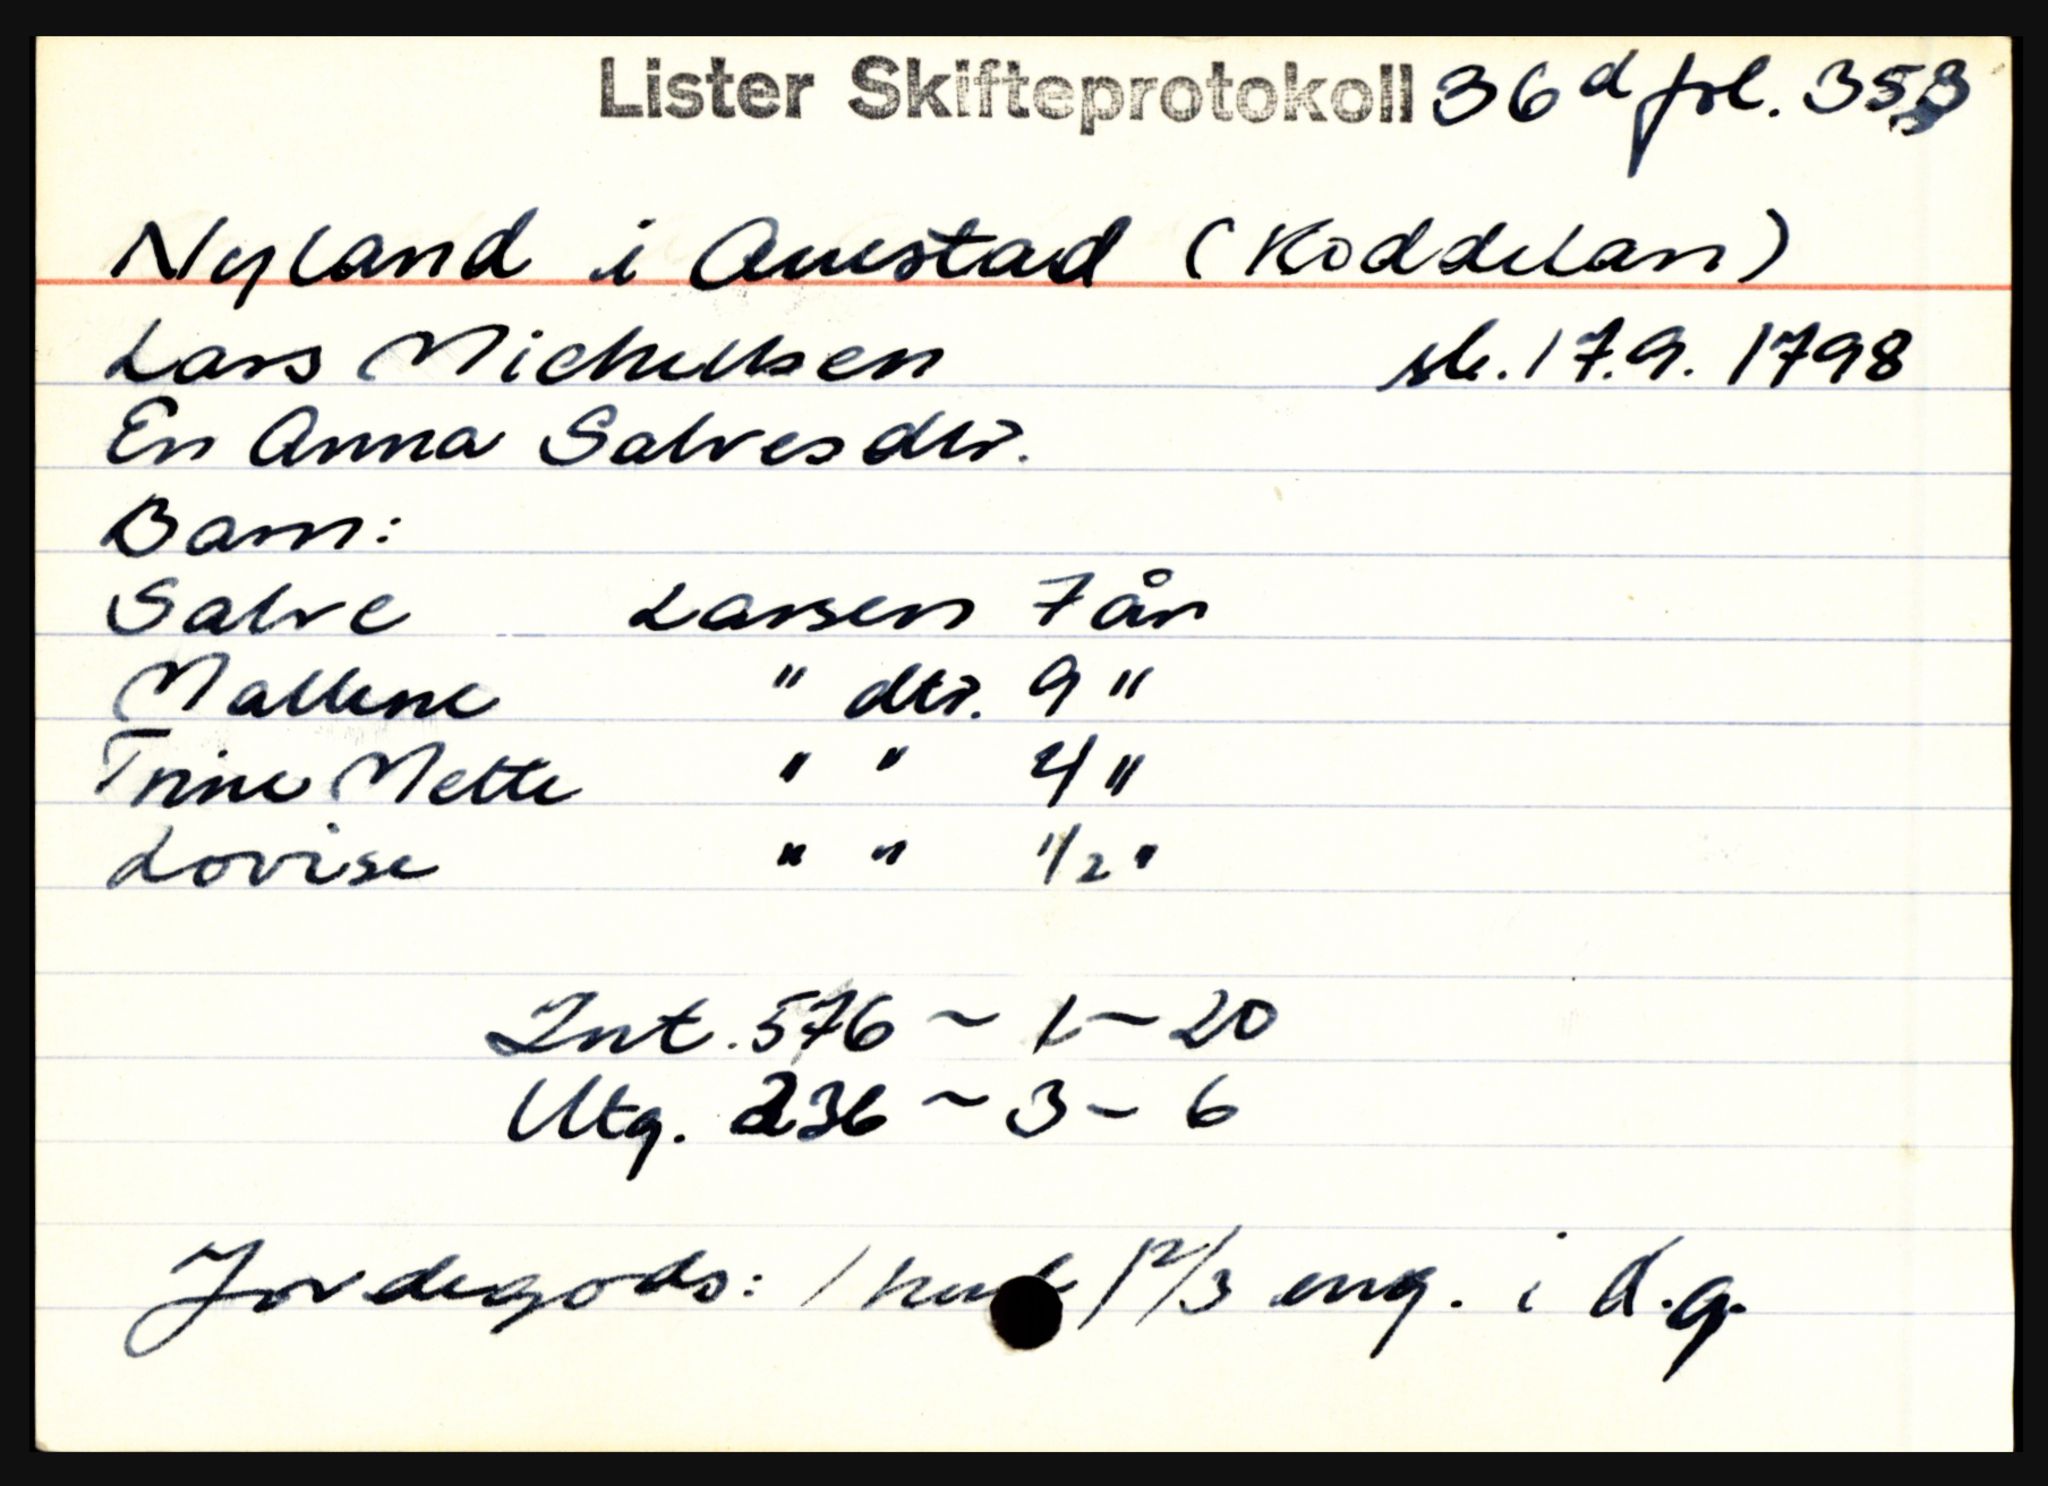 Lister Skifteprotokoll 36d fol. 353
Nyland i Austad (Koddelan)
Lars Michelsen sk. 17.9. 1798
En Anna Salvesdtr.
Barn:
Salve Larsen 7 år
Mallene " dtr. 9 "
Trine Mette " " 4 "
Lovise " " 1/2 "
Int. 576 ~ 1 ~ 20
Utg. 236 ~ 3 - 6
Jordegods: 1 hud 1 2/3 eng. i d.g.